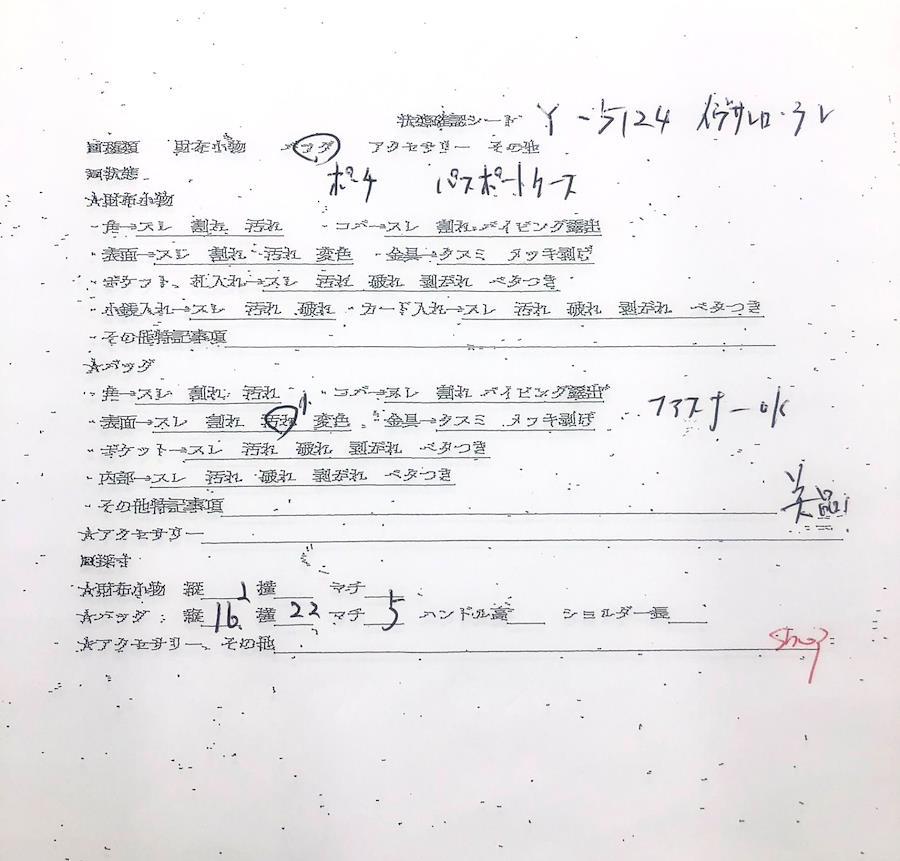 状態確認シート Y-5124 イヴサンローラン
■種類 財布小物 バッグ アクセサリー その他
■状態 ポーチ パスポートケース
★財布小物
・角→スレ 割れ 汚れ ・コバ→スレ 割れ パイピング露出
・表面→スレ 割れ 汚れ 変色 ・金具→クスミ メッキ剥げ
・ポケット、札入れ→スレ 汚れ 破れ 剥がれ ベタつき
・小銭入れ→スレ 汚れ 破れ ・カード入れ→スレ 汚れ 破れ 剥がれ ベタつき
・その他特記事項
★バッグ
・角→スレ 割れ 汚れ ・コバ→スレ 割れ パイピング露出
・表面→スレ 割れ 汚れ 小 変色 ・金具→クスミ メッキ剥げ ファスナーok
・ポケット→スレ 汚れ 破れ 剥がれ ベタつき
・内部→スレ 汚れ 破れ 剥がれ ベタつき
・その他特記事項 美品!
★アクセサリー
■採寸
★財布小物 縦 横 マチ
★バッグ: 縦 16 横 22 マチ 5 ハンドル高 ショルダー長
★アクセサリー、その他